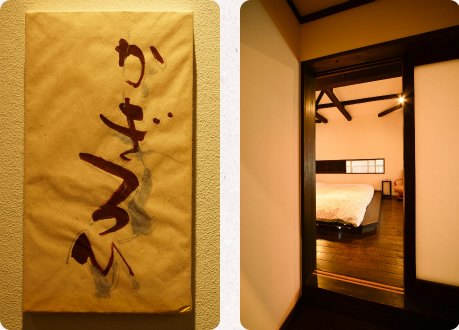 かぎろひ